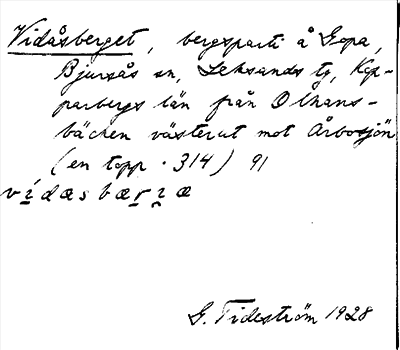 Vidåsberget, bergsparti å Gopa,
Bjursås sn, Leksands tg, Kop-
parbergs län från Olhans-
bäcken västerut mot Årbosjön
(en topp · 314) 91
vídæsbærıæ
G. Tideström 1928